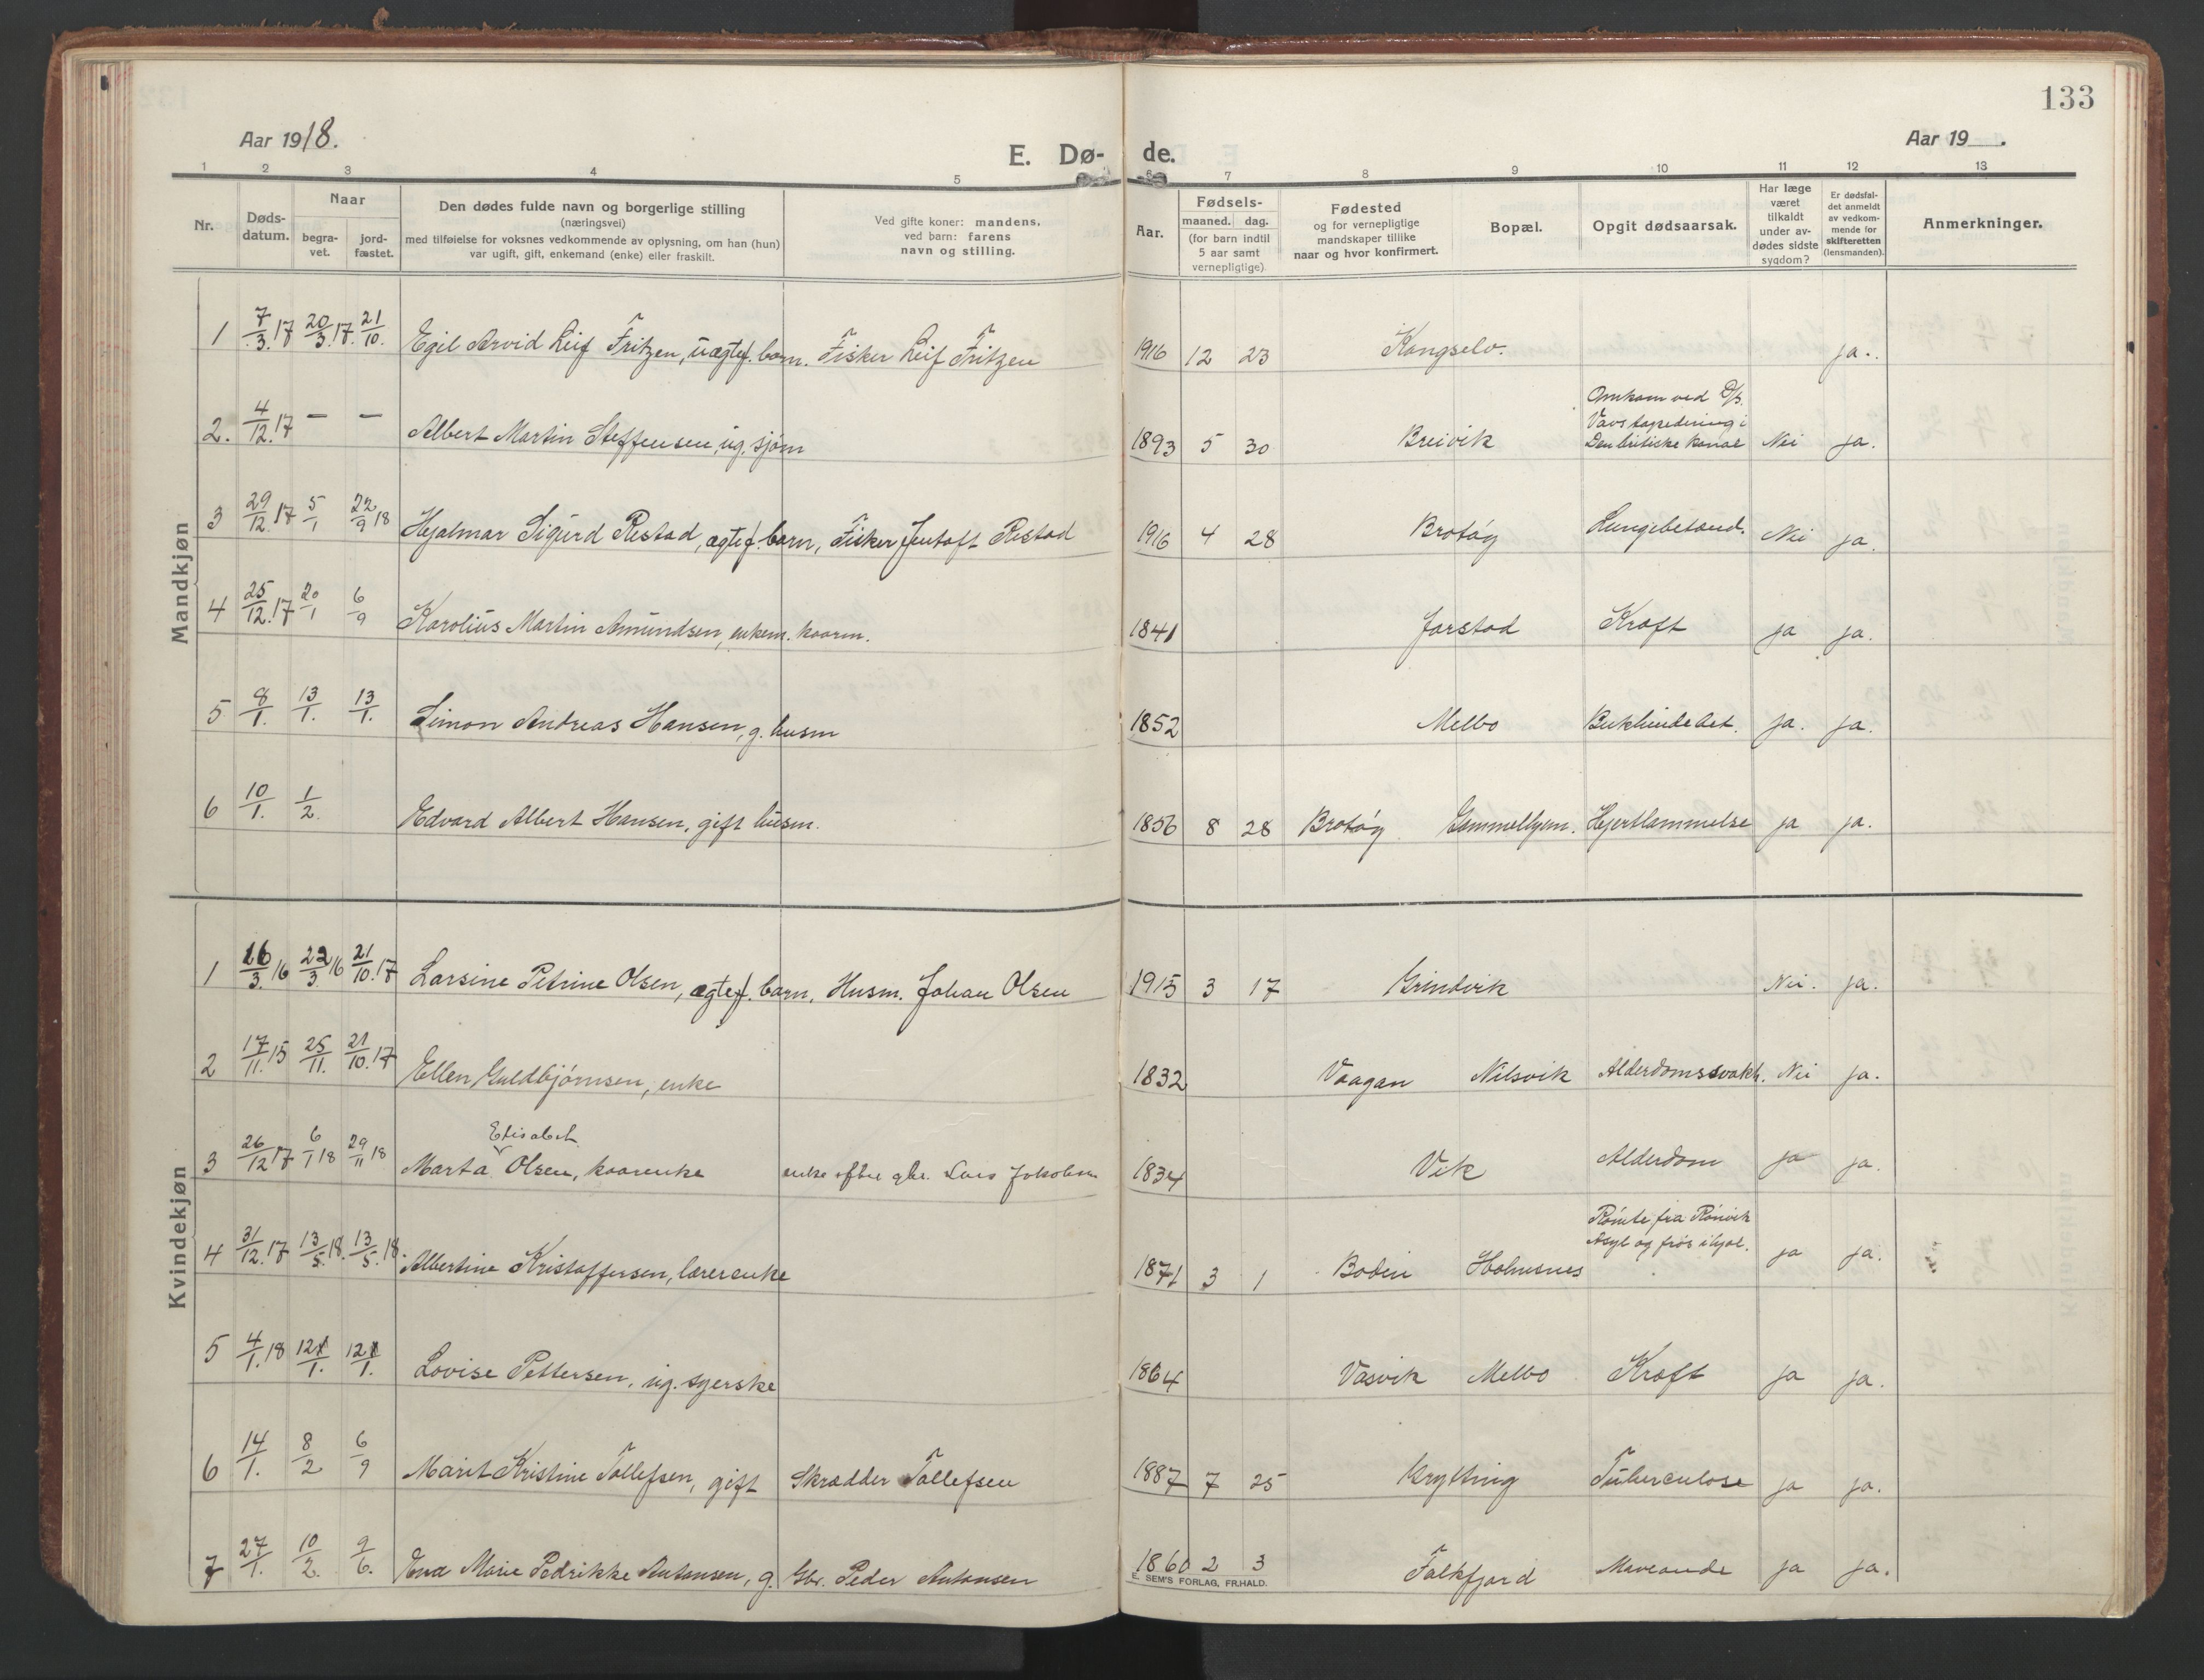 133
Aar 1918.
E. Dø-
de.
Aar 19 .
1 2 3 4 5 6 7 8 9 10 11 12 13
Nr.
Døds-
datum.
Naar
begra-
vet.
jord-
fæstet.
Den dødes fulde navn og borgerlige stilling
(næringsvei)
med tilføielse for voksnes vedkommende av oplysning, om han (hun)
var ugift, gift, enkemand (enke) eller fraskilt.
Ved gifte koner: mandens,
ved barn: farens
navn og stilling.
Aar.
Fødsels-
maaned. dag.
(for barn indtil
5 aar samt
vernepligtige)
Fødested
og for vernepligtige
mandskaper tillike
naar og hvor konfirmert.
Bopæl.
Opgit dødsaarsak.
Har læge
været
tilkaldt
under av-
dødes sidste
sygdom?
Er dødsfal-
det anmeldt
av vedkom-
mende for
skifteretten
(lensmanden).
Anmerkninger.
Mandkjøn
1 7/3.17 20/3.17. 21/10. Egil Arvid Leif Fritzen, uægtef. barn. Fisker Leif Fritzen 1916 12 23 Kongselv. ja.
2. 4/12.17 — — Albert Martin Steffensen, ug. sjøm 1893 5 30 Breivik
Omkom ved D/S.
Vavs torpedering i
Den britiske kanal
Nei ja.
3 29/12.17 5/1 22/9 18 Hjalmar Sigurd Restad, ægtef. barn, Fisker Jentoft Restad 1916 4 28 Brotøy Lungebetænd. Nei ja.
4 25/12.17 20/1 6/9 Karolius Martin Amundsen, enkem. kaarm. 1841 Jorstad Kræft ja ja.
5 8/1. 13/1. 13/1. Simon Andreas Hansen, g. husm 1852 Melbo Bukhindebet. ja. ja.
6 10/1. 1/2. Edvard Albert Hansen, gift husm. 1856 8 28 Brotøy Gammelhjem. Hjertlammelse ja ja.
Kvindekjøn
1 16/3.16 22/3.16 21/10.17 Larsine Petrine Olsen, ægtef. barn, Husm. Johan Olsen 1915 3 17 Grindvik Nei. ja.
2 17/11.15 25/11. 21/10.17 Ellen Guldbjørnsen, enke 1832 Vaagan Nilsvik Alderdomssvakh. Nei ja.
Elisabet
3 26/12 17 6/1 18 29/11 18 Marta Olsen, kaarenke enke efter gbr. Lars Jakobsen 1834 Vik Alderdom ja ja.
4 31/12.17 13/5.18. 13/5.18. Albertine Kristoffersen, lærerenke 1871 3 1 Bodin Holmsnes
Rømte fra Rønvik
Asyl og frøs ihjel.
ja ja.
5 4/1.18 12/1. 12/1. Lovise Pettersen, ug. syerske 1864 Vasvik Melbo Kræft ja ja.
6 14/1. 8/2 6/9 Marit Kristine Tollefsen, gift Skrædder Tollefsen 1887 7 25 Krytting Tuberculose ja ja.
7 27/1. 10/2. 9/6. Eva Marie Pedrikke Antonsen, g. Gbr. Peder Antonsen 1860 2 3 Falkfjord Maveonde ja ja.
E. SEM'S FORLAG, FR.HALD.